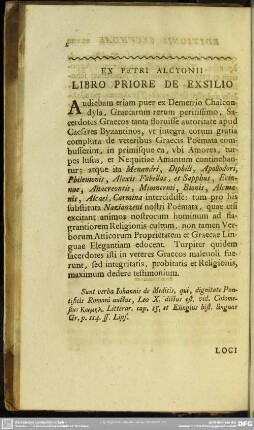 EX PETRI ALCYONII
LIBRO PRIORE DE EXSILIO
Audiebam etiam puer ex Demetrio Chalcon-
dyla, Graecarum rerum peritissimo, Sa-
cerdotes Graecos tanta floruisse auctoritate apud
Caesares Byzantinos, vt integra eorum gratia
complura de veteribus Graecis Poëmata com-
busserint, in primisque ea, vbi Amores, tur-
pes lusus, et Nequitiae Amantum contineban-
tur: atque ita Menandri, Diphili, Apollodori,
Philemonis, Alexis Fabellas, et Sapphus, Erin-
nae, Anacreontis, Mimnermi, Bionis, Alcma-
nis, Alcaei, Carmina intercidisse: tum pro his
substituta Nazianzeni nostri Poëmata, quae etsi
excitant animos nostrorum hominum ad fla-
grantiorem Religionis cultum, non tamen Ver-
borum Atticorum Proprietatem et Graecae Lin-
guae Elegantiam edocent. Turpiter quidem
sacerdotes isti in veteres Graecos maleuoli fue-
runt, sed integritatis, probitatis et Religionis,
maximum dedere testimonium.
Sunt verba Iohannis de Medicis, qui, dignitate Pon-
tificis Romani auctus, Leo X. dictus est. vid. Colome-
sius Κειμηλ. Litterar. cap. 15. et Elingius hist. linguae
Gr. p. 114. ff. Lips.
LOCI